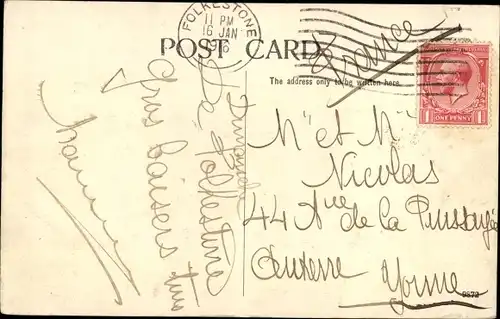 FOLKESTONE
11 PM
16 JAN
16
POST CARD
The address only to be written here.
France
ONE PENNY
de Folkestone
Gros baisers
Mr et Me
Nicolas
44 Aue de la
Auxerre Yonne
9572